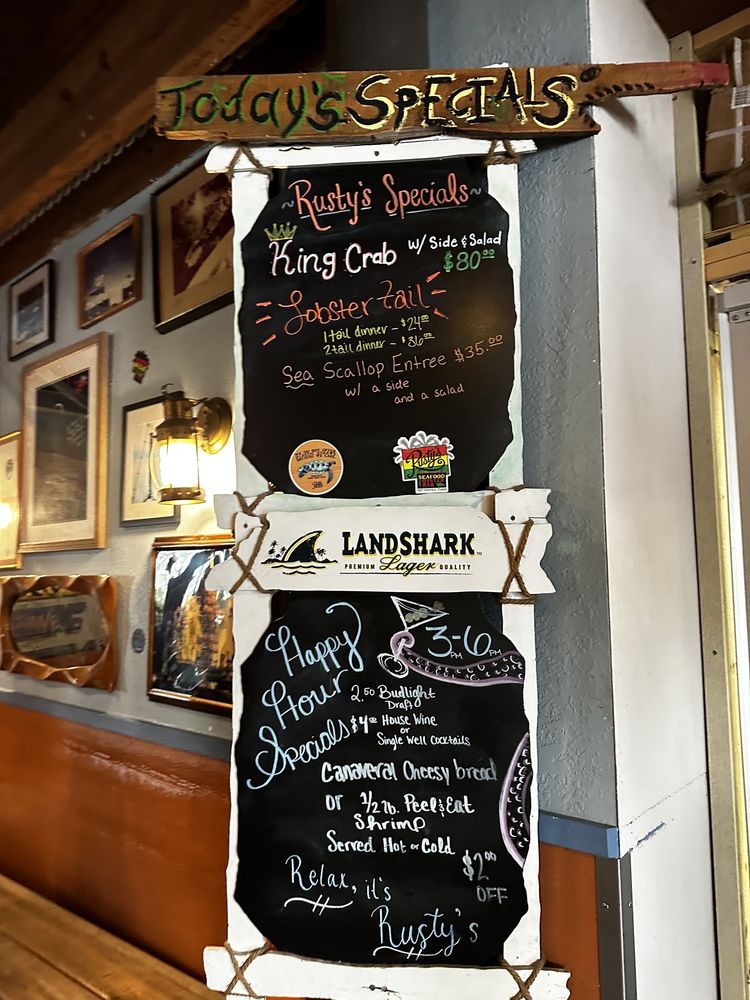 Today's SPECIALS
~Rusty's Specials~
King Crab w/ Side & Salad
$80.00
Lobster Tail
1 tail dinner - $24.00
2 tail dinner - $36.00
Sea Scallop Entree $35.00
w/ a side
and a salad
Rusty's
SEAFOOD
OYSTER
BAR
LANDSHARK
PREMIUM Lager QUALITY
Happy
Hour
Specials
3PM-6PM
2.50 Budlight
Draft
$4.00 House Wine
or
Single Well Cocktails
Canaveral Cheesy bread
or 1/2 lb. Peel & Eat
Shrimp
Served Hot or Cold
$2.00
OFF
Relax, it's
Rusty's